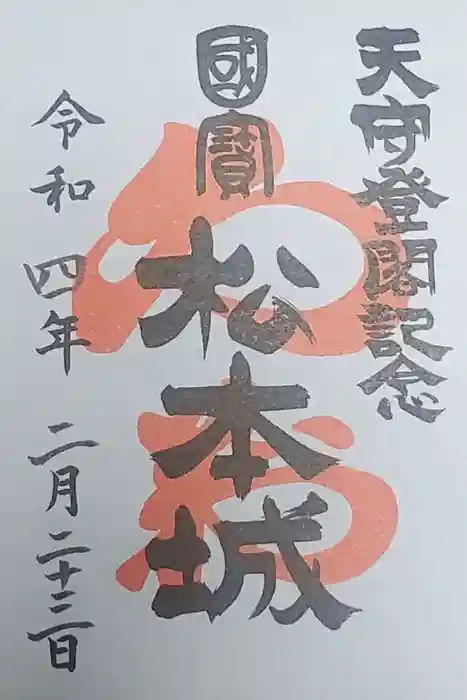 天守登閣記念
國寳
松本城
令和四年二月二十三日